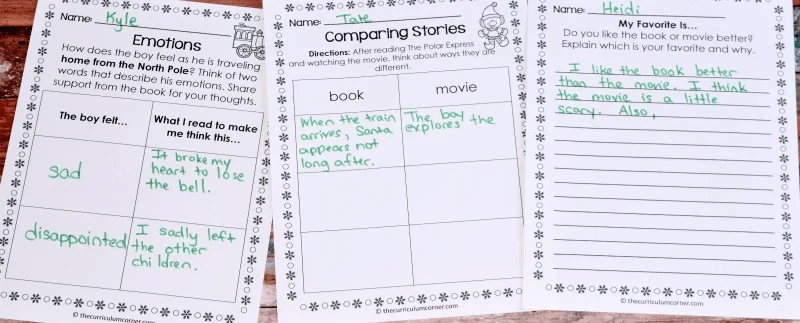 Name: Kyle
Emotions
How does the boy feel as he is traveling
home from the North Pole? Think of two
words that describe his emotions. Share
support from the book for your thoughts.
The boy felt...
What I read to make
me think this...
sad
It broke my
heart to lose
the bell.
disappointed
I sadly left
the other
children.
© thecurriculumcorner.com
Name: Tate
Comparing Stories
Directions: After reading The Polar Express
and watching the movie, think about ways they are
different.
book
movie
When the train
arrives, Santa
appears not
long after.
The boy
explores the
© thecurriculumcorner.com
Name: Heidi
My Favorite Is...
Do you like the book or movie better?
Explain which is your favorite and why.
I like the book better
than the movie. I think
the movie is a little
scary. Also,
© thecurriculumcorner.com